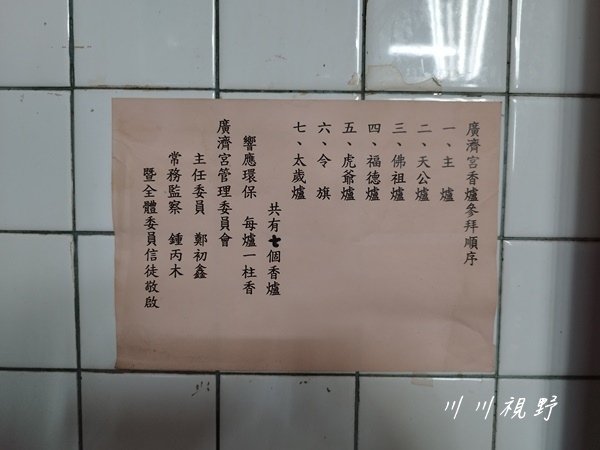 廣濟宮香爐參拜順序
一、主　爐
二、天公爐
三、佛祖爐
四、福德爐
五、虎爺爐
六、令　旗
七、太歲爐
共有七個香爐
響應環保　每爐一柱香
廣濟宮管理委員會
主任委員　鄭初鑫
常務監察　鍾丙木
暨全體委員信徒敬啟
川川視野